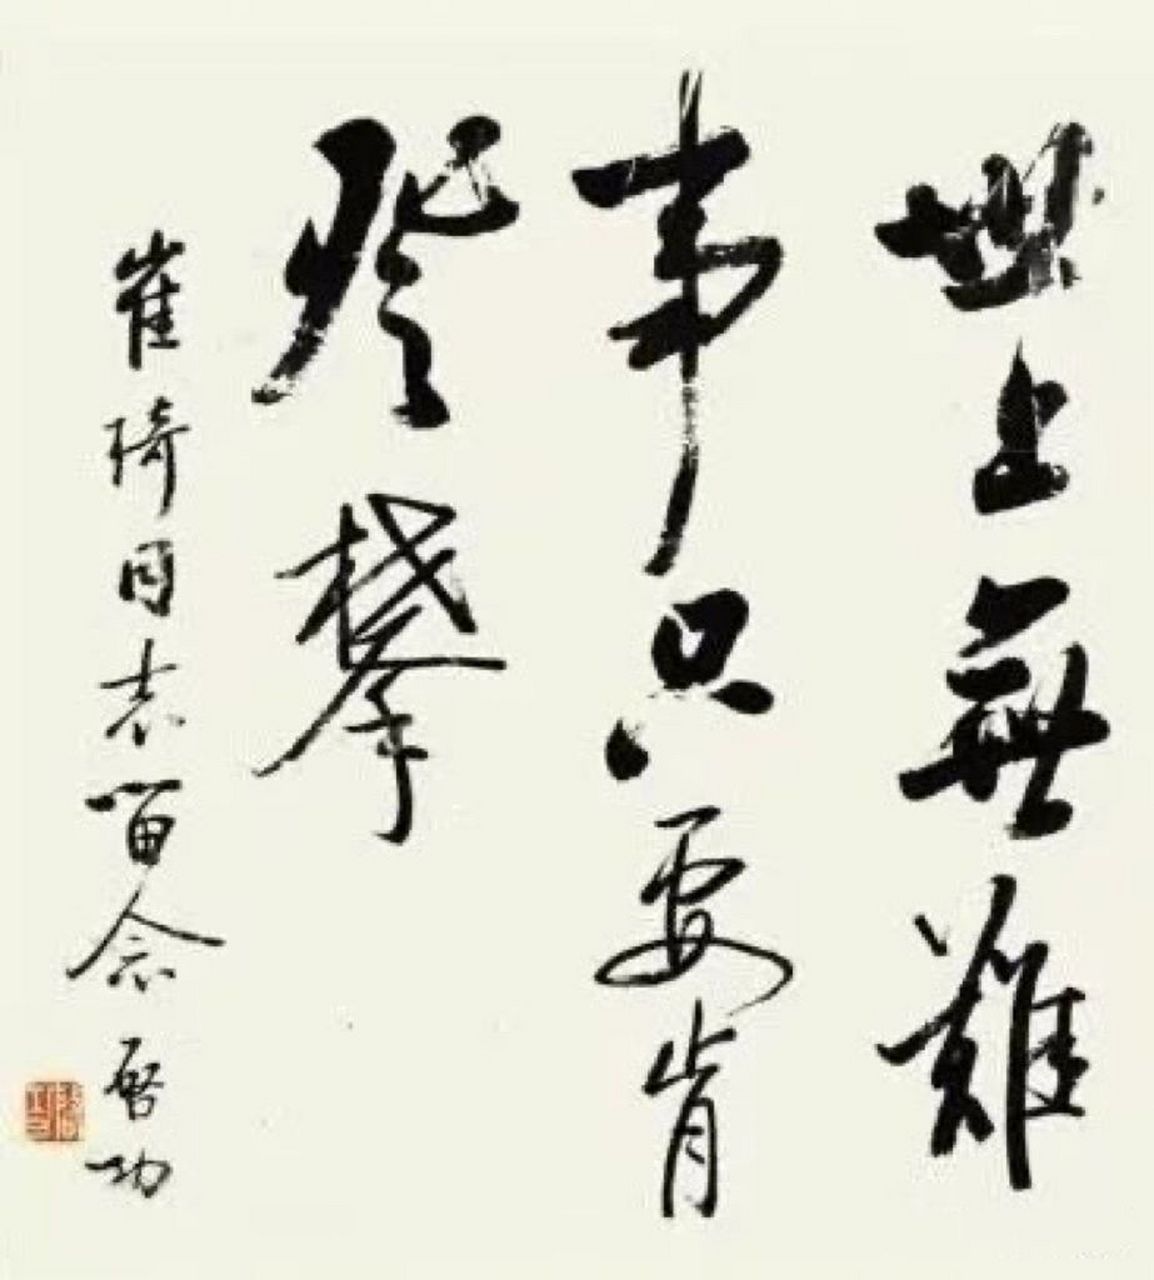 世上無難
事只要肯
登攀
崔琦同志留念 啓功